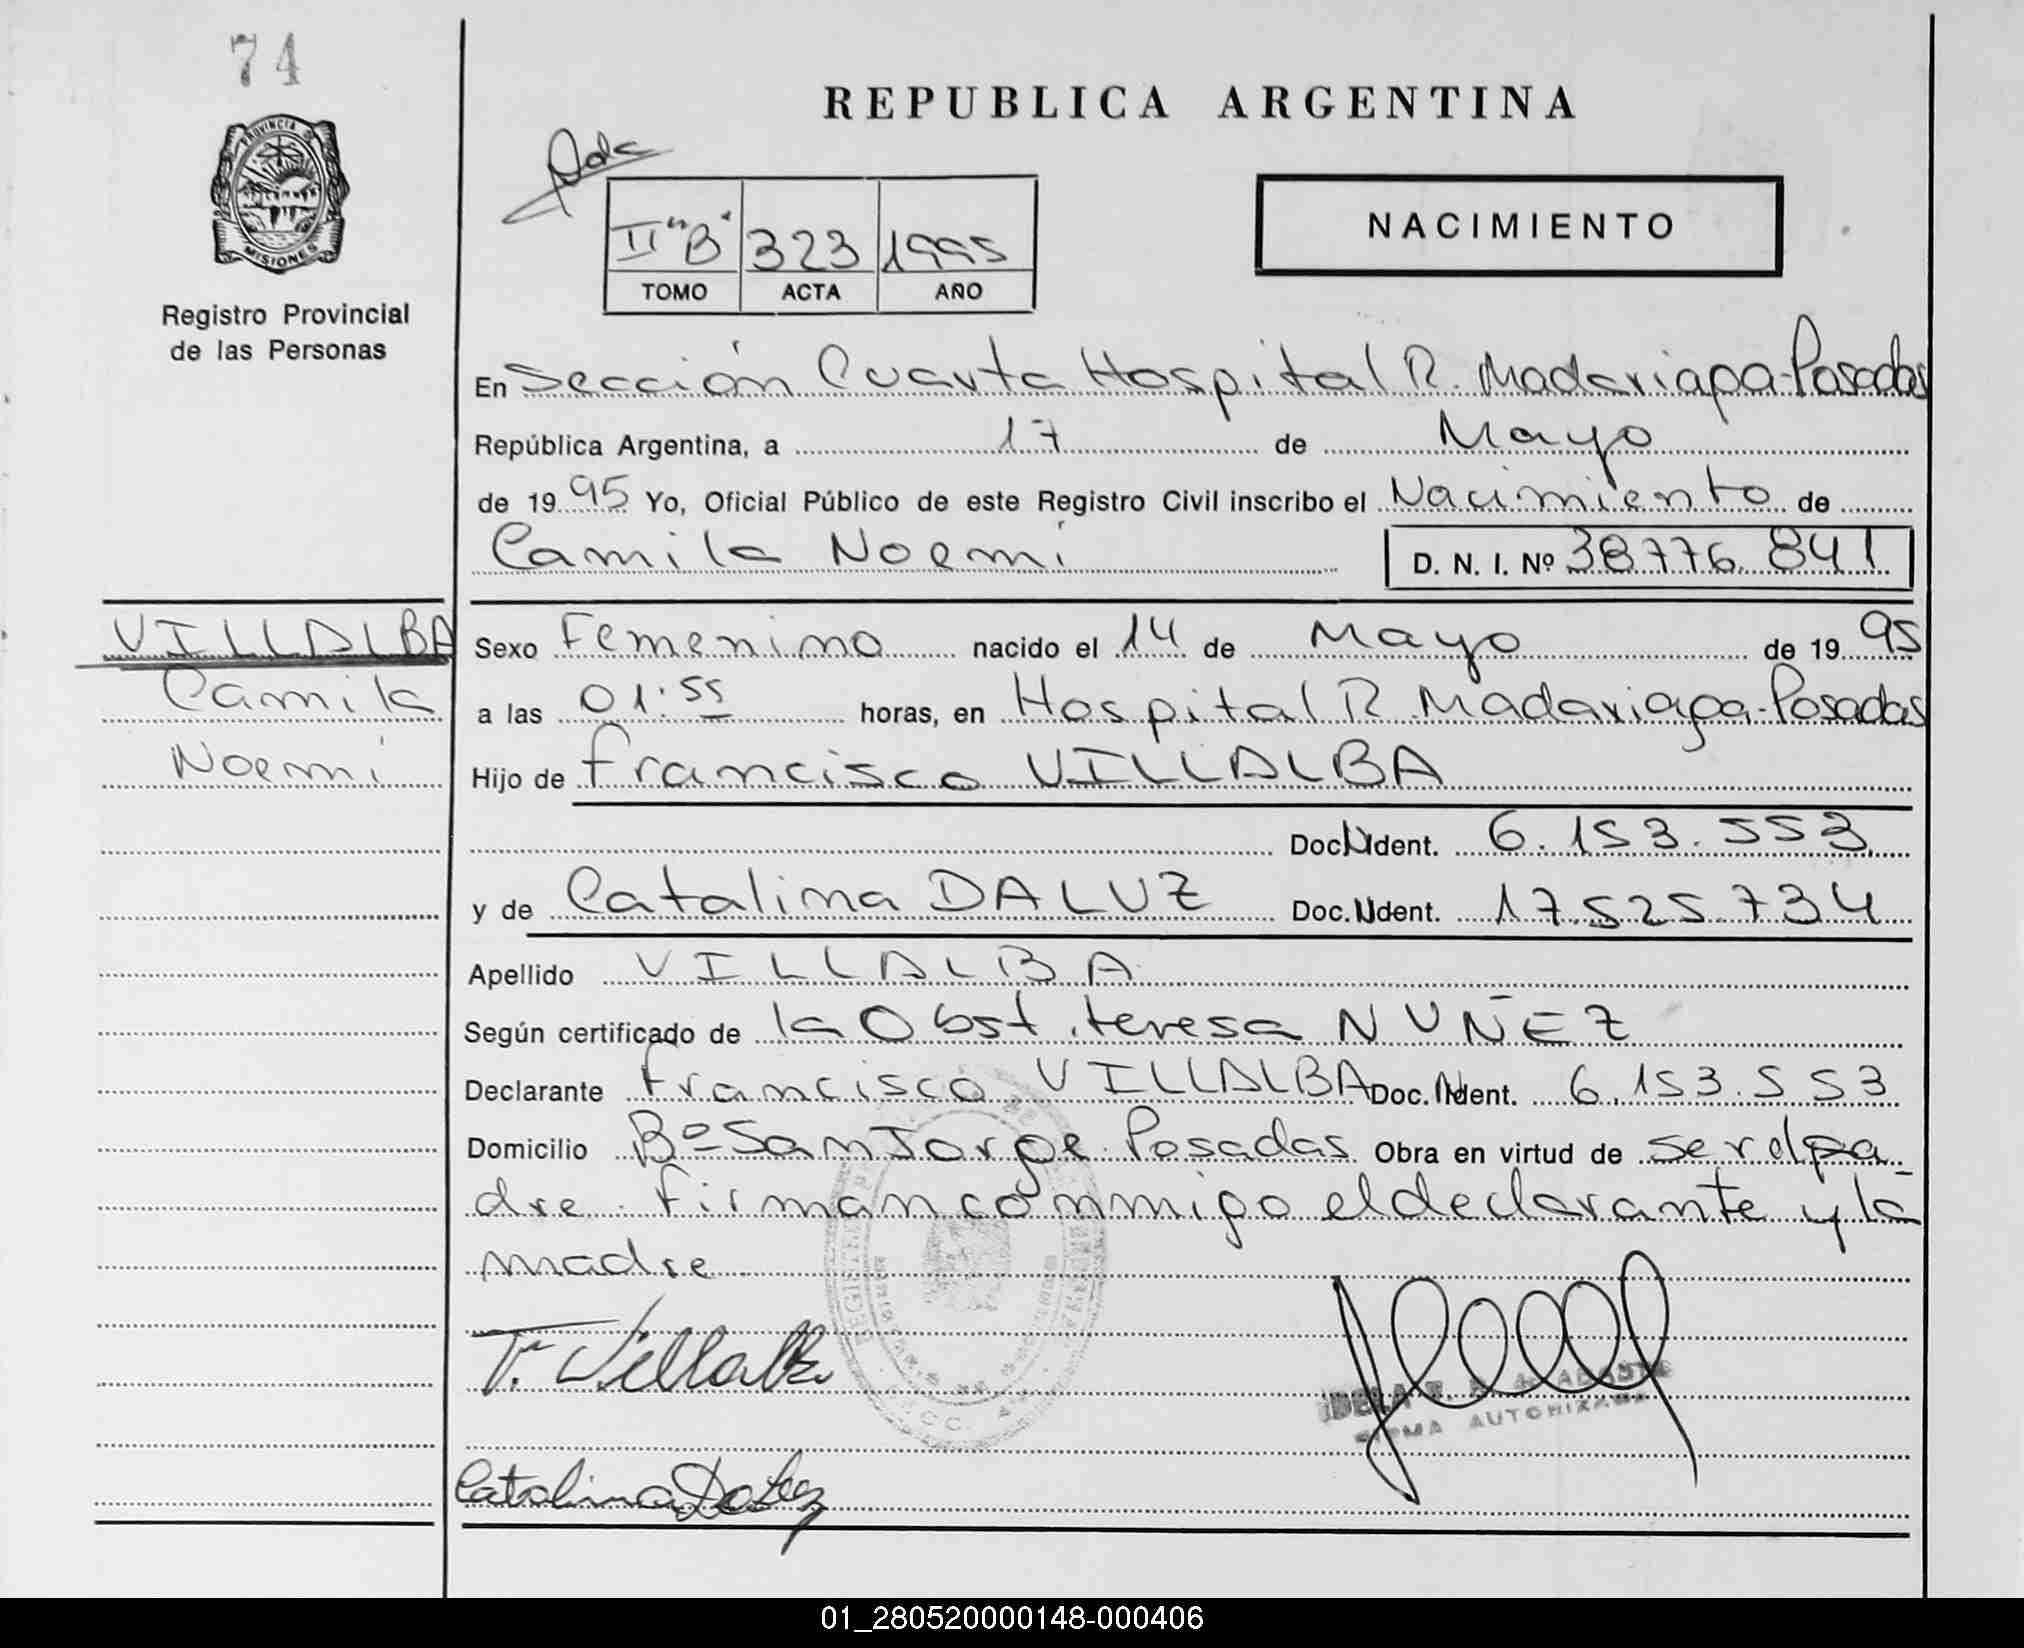 74
REPUBLICA ARGENTINA
PROVINCIA D
MISIONES
Registro Provincial
de las Personas
II "B" 323 1995
TOMO ACTA AÑO
NACIMIENTO
En Sección Cuarta Hospital R. Madariaga-Posadas
República Argentina, a 17 de Mayo
de 1995 Yo, Oficial Público de este Registro Civil inscribo el Nacimiento de
Camila Noemí D. N. I. Nº 38776.841
VILLALBA
Camila
Noemí
Sexo Femenino nacido el 14 de Mayo de 1995
a las 01:55 horas, en Hospital R. Madariaga-Posadas
Hijo de Francisco VILLALBA
Doc. Ident. 6.153.553
y de Catalina DA LUZ Doc. Ident. 17.525.734
Apellido VILLALBA
Según certificado de la Obst. teresa NUÑEZ
Declarante Francisco VILLALBA Doc. Ident. 6.153.553
Domicilio Bº San Jorge. Posadas Obra en virtud de ser el pa-
dre. Firman conmigo el declarante y la
madre
F. Villalba
FIRMA AUTORIZADA
Catalina Da Luz
01_280520000148-000406